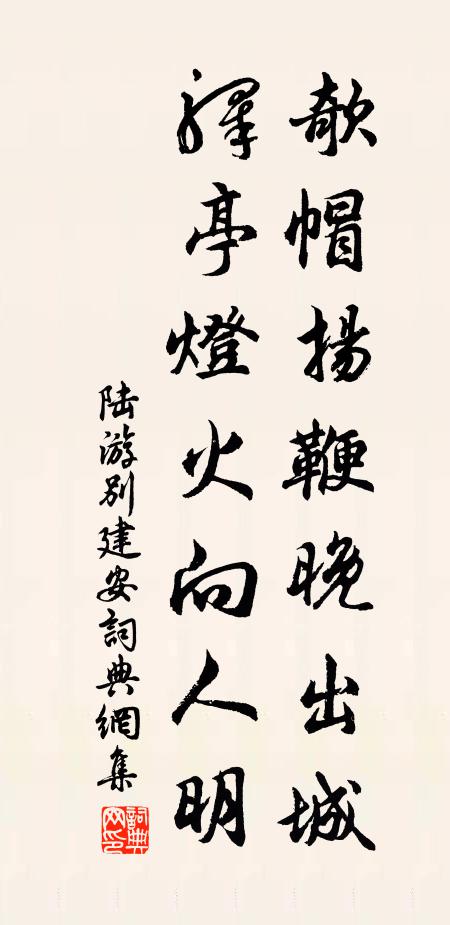 欹帽揚鞭晚出城
驛亭燈火向人明
陆游别建安詞典網集
詞典網印